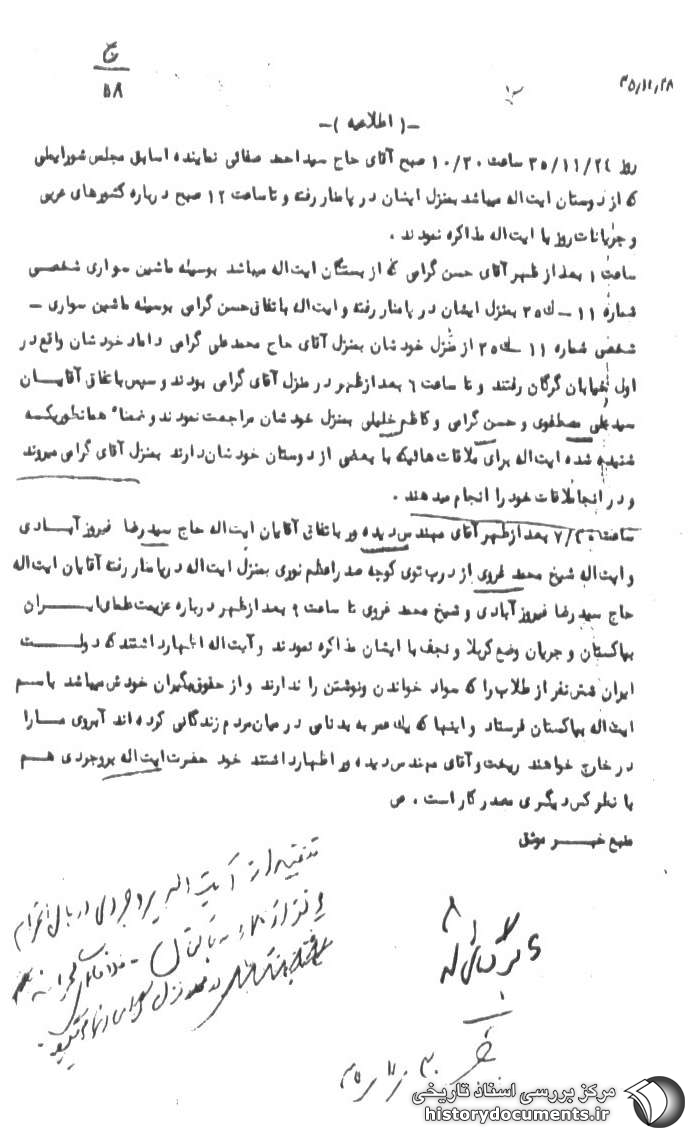 ج
۵۸
۳۵/۱۱/۲۸
-( اطلاعیه )-
روز ۳۵/۱۱/۲۴ ساعت ۱۰/۳۰ صبح آقای حاج سیداحمد صفائی نماینده اسابق مجلس شورایملی
که از دوستان ایت‌اله میباشد بمنزل ایشان در پامنار رفته و تا ساعت ۱۲ صبح درباره کشورهای عربی
و جریانات روز با ایت‌اله مذاکره نمودند .
ساعت ۱ بعد از ظهر آقای حسن گرامی که از بستگان ایت‌اله میباشد بوسیله ماشین سواری شخصی
شماره ۱۱ – ك ۳۵ بمنزل ایشان در پامنار رفته و ایت‌اله باتفاق حسن گرامی بوسیله ماشین سواری –
شخصی شماره ۱۱ ك ۳۵ از منزل خودشان بمنزل آقای حاج محمدعلی گرامی داماد خودشان واقع در
اول خیابان گرگان رفتند و تا ساعت ۶ بعد ازظهر در منزل آقای گرامی بودند و سپس باتفاق آقایان
سیدعلی مصطفوی و حسن گرامی و کاظم خلیلی بمنزل خودشان مراجعت نمودند و ضمناً همانطوریکه
شنیده شده ایت‌اله برای ملاقات هائیکه با بعضی از دوستان خودشان دارند بمنزل آقای گرامی میروند
و در انجا ملاقات خود را انجام میدهند .
ساعت ۷/۳۰ بعد ازظهر آقای مهندس دیده ور باتفاق آقایان ایت‌اله حاج سیدرضا فیروزآبادی
و ایت‌اله شیخ محمد غروی از درب توی کوچه صدراعظم نوری بمنزل ایت‌اله در پامنار رفته آقایان ایت‌اله
حاج سیدرضا فیروزآبادی و شیخ محمد غروی تا ساعت ۹ بعد ازظهر درباره عزیمت علمای ایران
بپاکستان و جریان وضع کربلا و نجف با ایشان مذاکره نمودند و آیت‌اله اظهار داشتند که دولت
ایران شش نفر از طلاب را که سواد خواندن ونوشتن را ندارند و از حقوق‌بگیران خودش میباشد باسم
ایت‌اله بپاکستان فرستاد و اینها که یك عمر به بدنامی در میان مردم زندگانی کرده اند آبروی ما را
در خارج خواهند ریخت و آقای مهندس دیده ور اظهار داشتند خود حضرت ایت‌اله بروجردی هم
با نظر کس دیگری مصدر کار است . ص
منبع خبر موثق
آیت اله بروجردی
مرکز بررسی اسناد تاریخی
historydocuments.ir